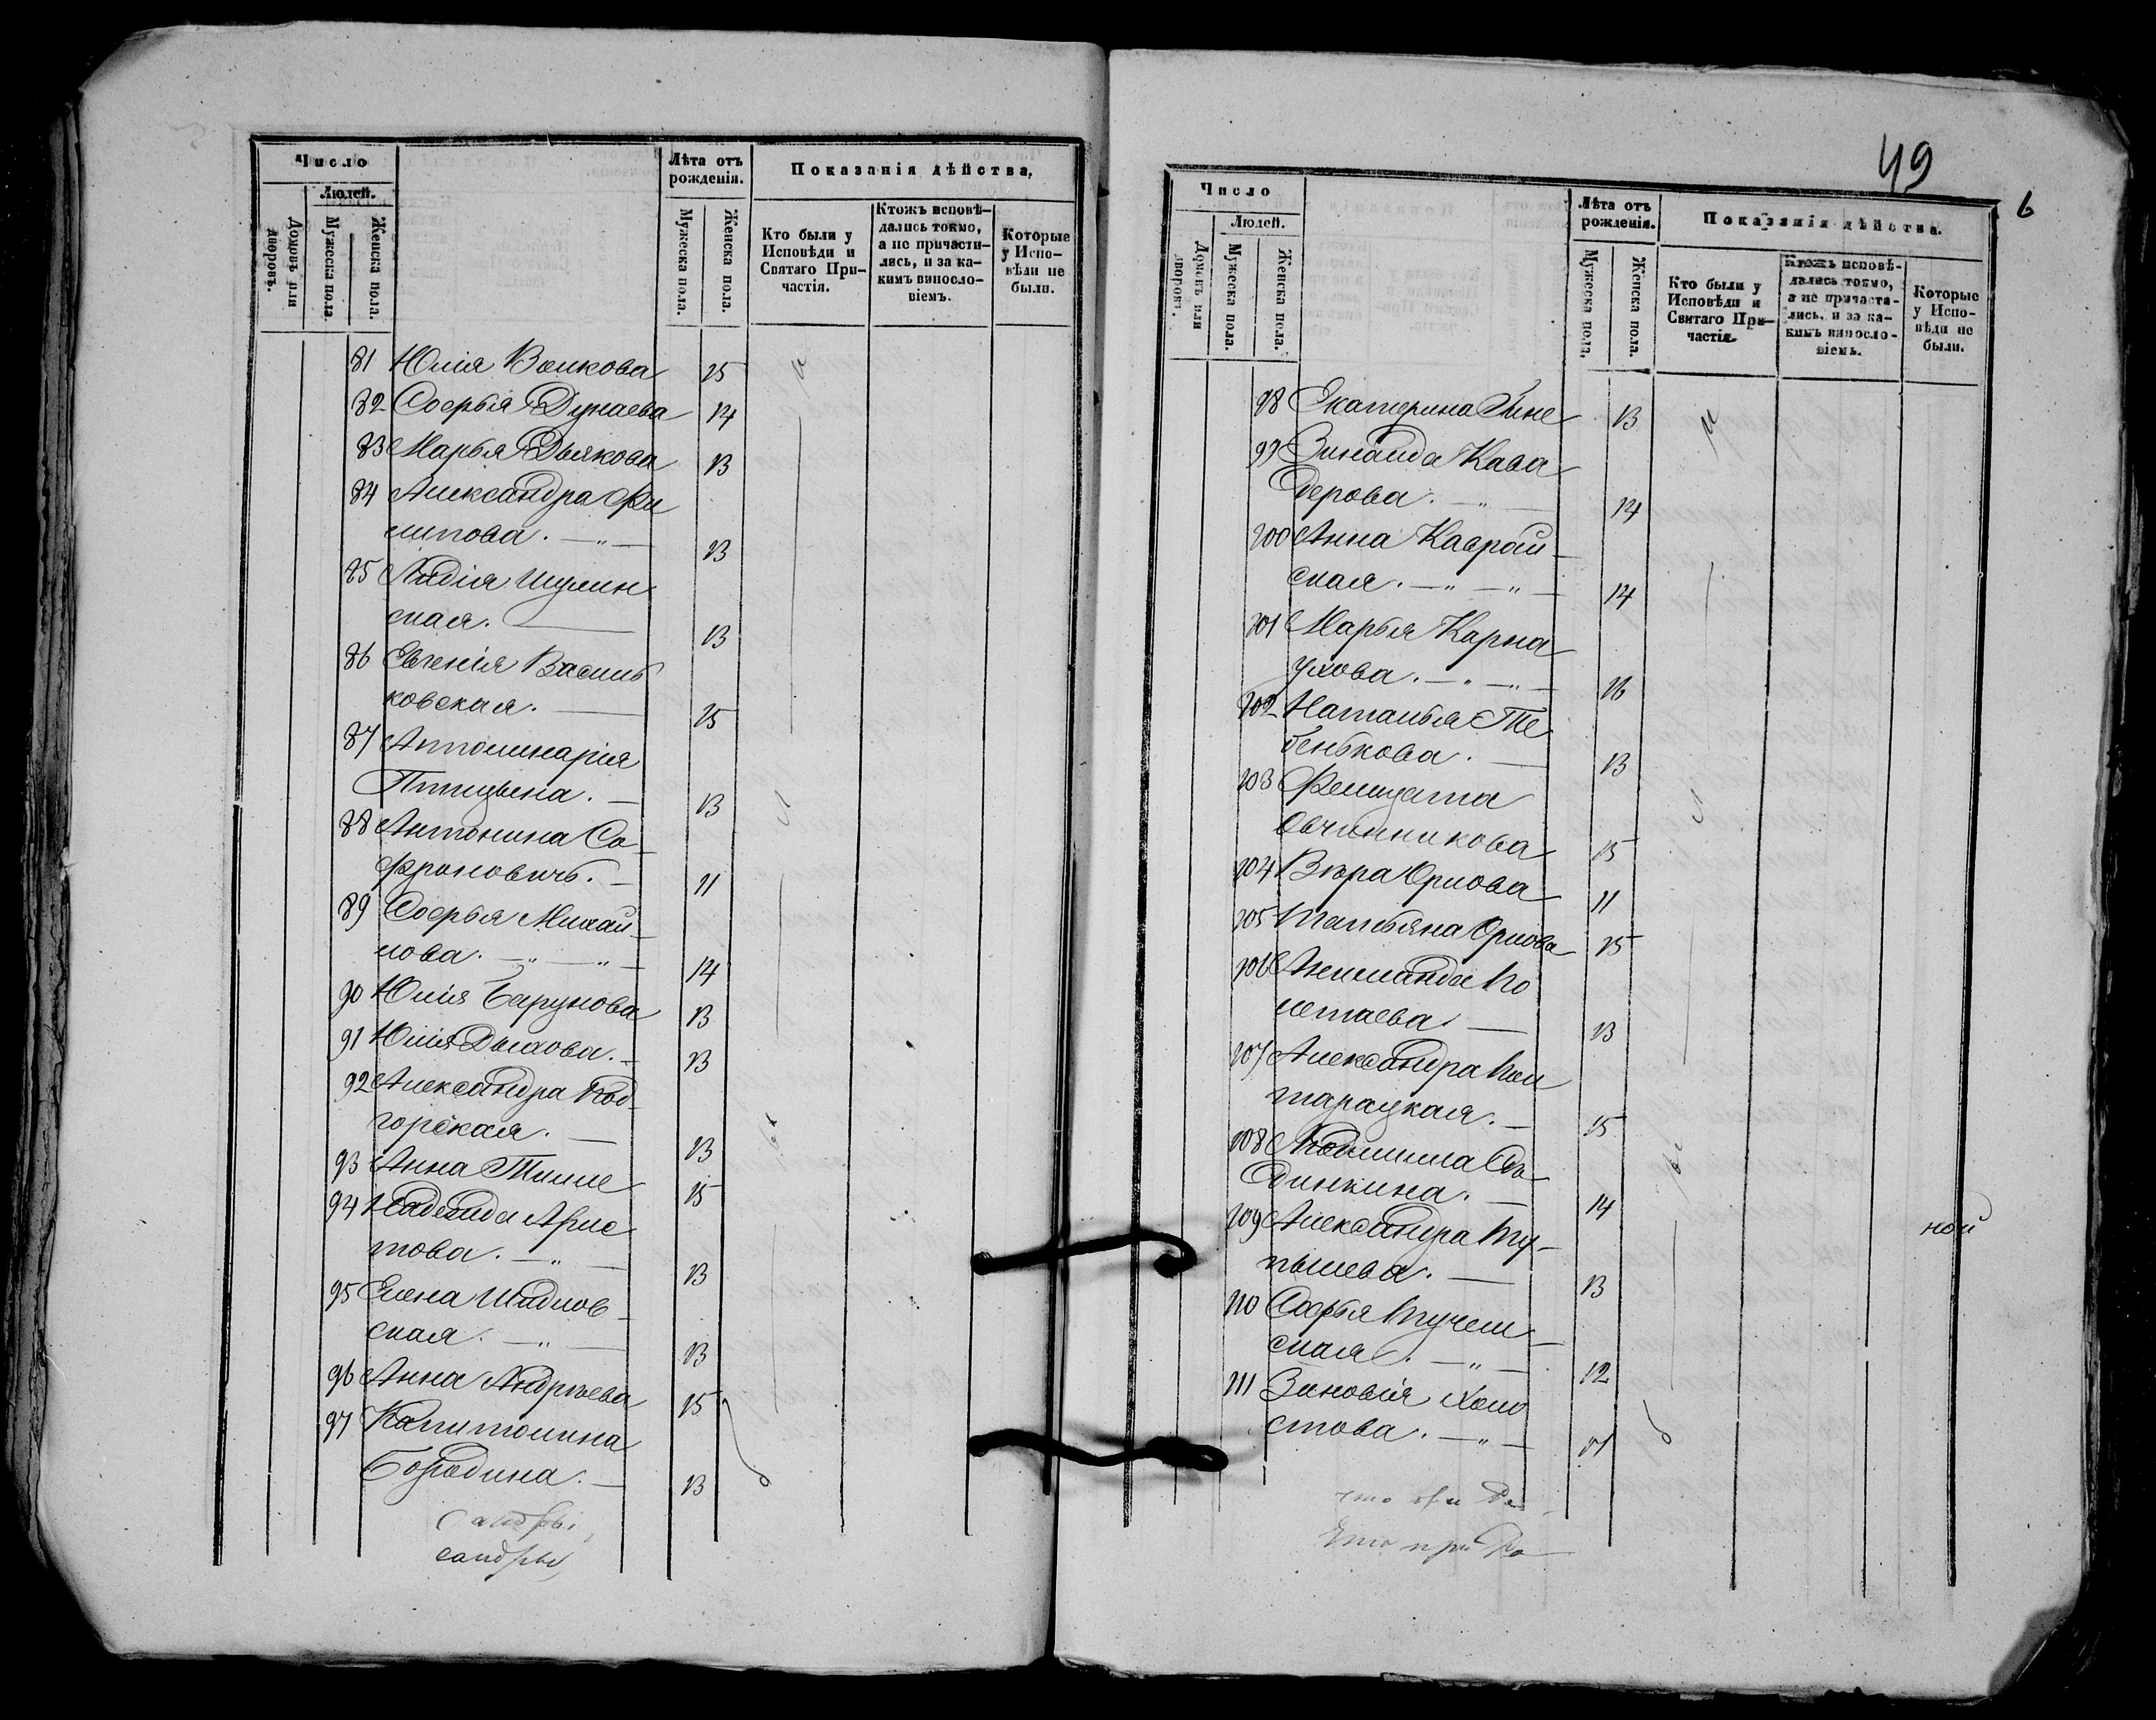 Число
Людей.
Домовъ или дворовъ.
Мужеска пола.
Женска пола.
Лѣта отъ рожденія.
Мужеска пола.
Женска пола.
Показанія дѣйства,
Кто были у Исповѣди и Святаго При-
частія.
Ктожъ исповѣ-
дались токмо,
а не причасти-
лись, и за ка-
кимъ виносло-
віемъ.
Которые
у Испо-
вѣди не
были.
81 Юлія Волкова 15
82 Софья Дунаева 14
83 Марья Дьякова 13
84 Александра Фи
липова. 13
85 Лидія Шулин
ская. 13
86 Евгенія Василь
ковская. 15
87 Апполинарія
Птицына. 13
88 Антонина Со-
фроновичъ. 11
89 Софья Михай-
лова. 14
90 Юлія Барунова 13
91 Юлія Дылова. 13
92 Александра Под-
горская. 13
93 Анна Тилле 15
94 Надежда Арис
това. 13
95 Елена Шидлов-
ская. 13
96 Анна Андрѣева 15
97 Капитолина
Бородина. 13
сандры
49
6
Число
Людей.
Домовъ или дворовъ.
Мужеска пола.
Женска пола.
Лѣта отъ рожденія.
Мужеска пола.
Женска пола.
Показанія дѣйства.
Кто были у
Исповѣди и
Святаго При-
частія.
Ктожъ исповѣ-
дались токмо,
а не причасти-
лись, и за ка-
кимъ виносло-
віемъ.
Которые
у Испо-
вѣди не
были.
98 Екатерина Гине 13
99 Зинаида Кава
дерова. 14
100 Анна Каврай-
ская. 14
101 Марья Карна
ухова. 16
102 Наталья Те
бенькова. 13
103 Фелицата
Овчинникова 15
104 Вѣра Орлова 11
105 Татьяна Орлова 15
106 По
летаева 13
107 Александра Пол
тарацкая. 15
108 Людмила Сѣ
динкина. 14
109 Александра Ту-
пылева. 13
110 Софья Тучем-
ская. 12
111 Зиновія Холо
стова. 11
ной
что при
Что при По